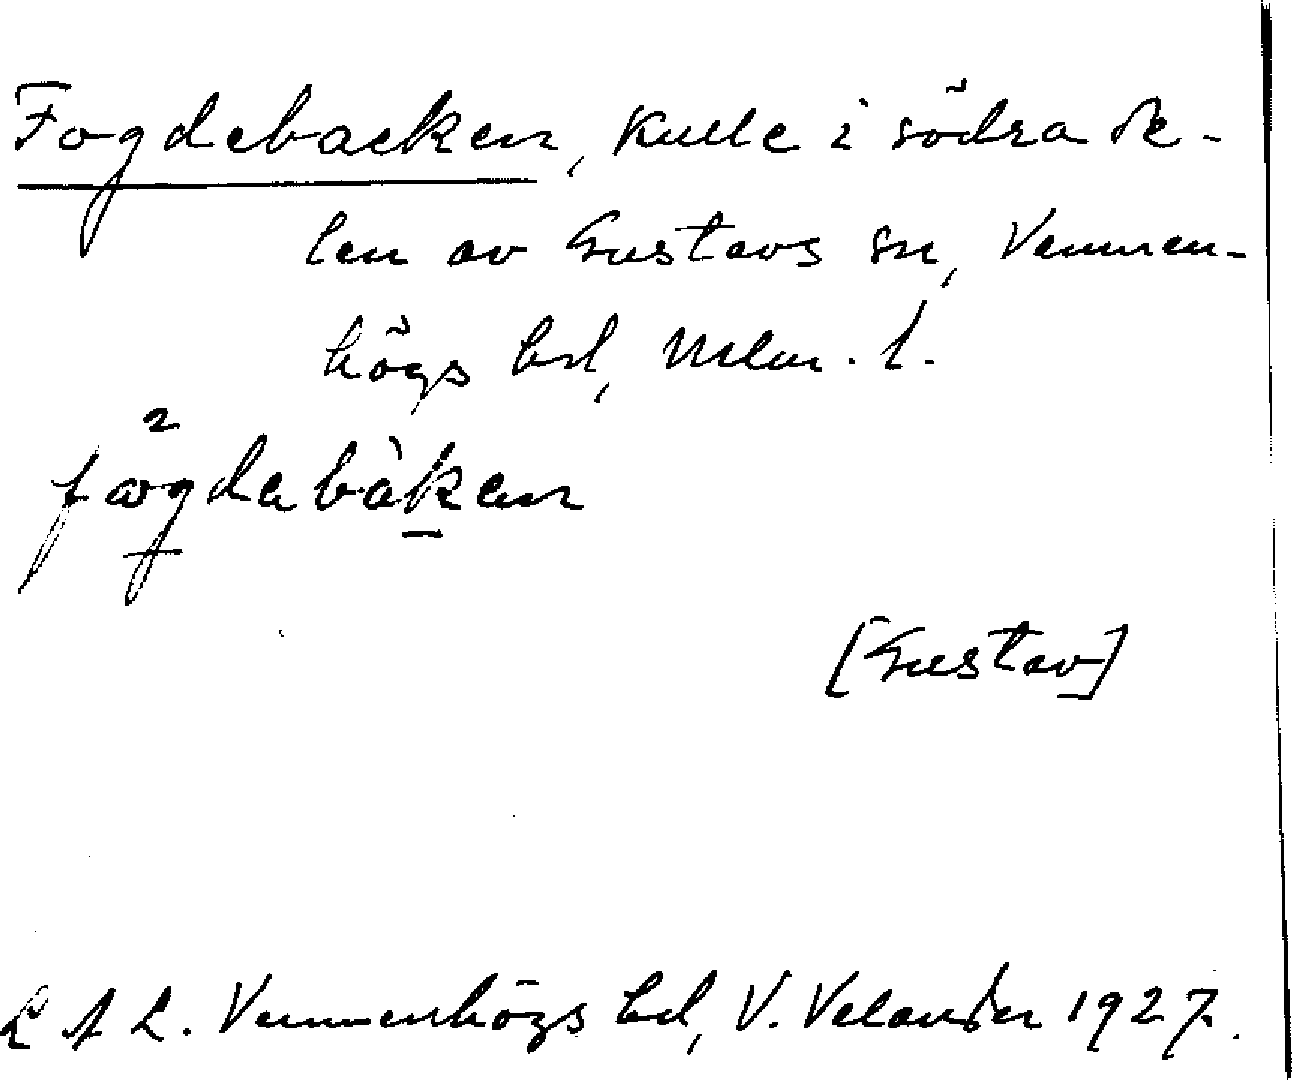 Fogdebacken, kulle i södra de-
len av Gustavs sn, Vemmen-
högs hd, Mlm. l.
[Gustav]
L A L. Vemmenhögs hd, V. Velander 1927.